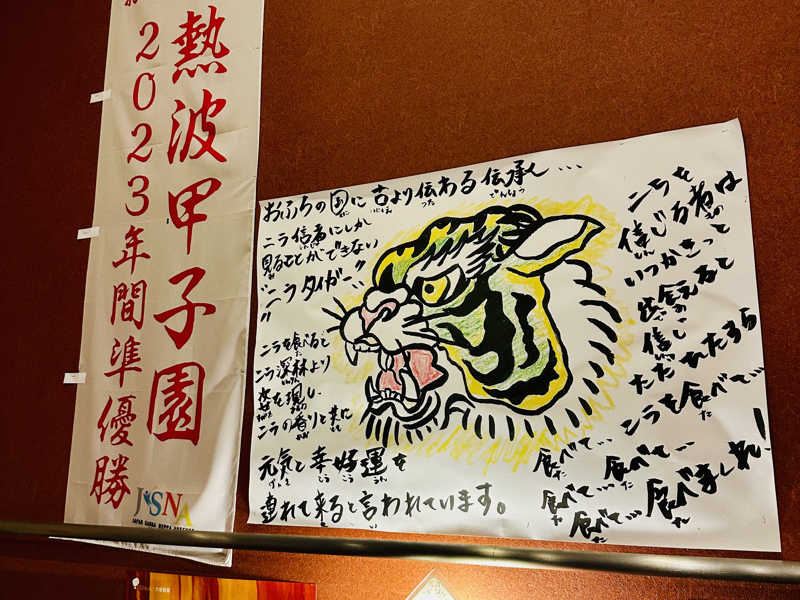 熱波甲子園
2023年間準優勝
JSNA
おふろの国に古より伝わる伝承…
ニラ信者にしか
見ることができない
"ニラタイガー"
ニラを食べると
ニラ深林より
姿を現し
ニラの香りと共に
元気と幸と好運を
連れて来ると言われています。
ニラを
信じる者は
いつかきっと
出会えると
信じ
ただひたすら
ニラを食べて…
食べて… 食べて…
食べて… 食べて…
食べましれ!